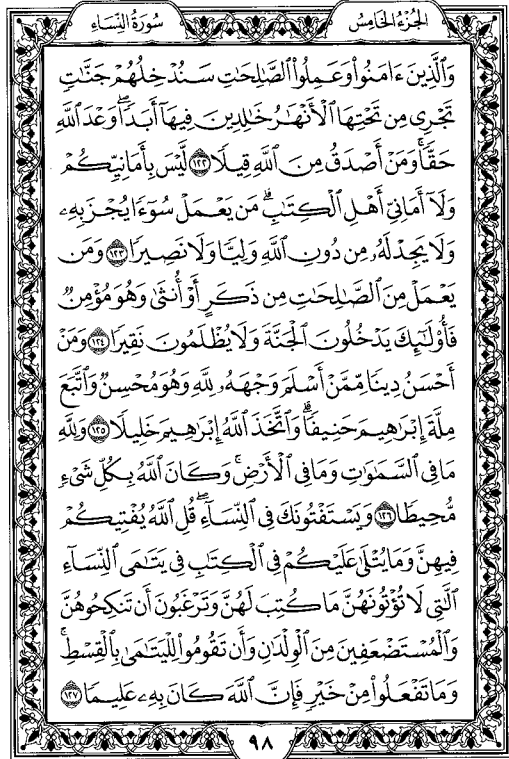 الجزء الخامس سورة النساء
وَٱلَّذِينَ ءَامَنُوا۟ وَعَمِلُوا۟ ٱلصَّـٰلِحَـٰتِ سَنُدْخِلُهُمْ جَنَّـٰتٍ
تَجْرِى مِن تَحْتِهَا ٱلْأَنْهَـٰرُ خَـٰلِدِينَ فِيهَآ أَبَدًا ۖ وَعْدَ ٱللَّهِ
حَقًّا ۚ وَمَنْ أَصْدَقُ مِنَ ٱللَّهِ قِيلًا ١٢٢ لَّيْسَ بِأَمَانِيِّكُمْ
وَلَآ أَمَانِىِّ أَهْلِ ٱلْكِتَـٰبِ ۗ مَن يَعْمَلْ سُوٓءًا يُجْزَ بِهِۦ
وَلَا يَجِدْ لَهُۥ مِن دُونِ ٱللَّهِ وَلِيًّا وَلَا نَصِيرًا ١٢٣ وَمَن
يَعْمَلْ مِنَ ٱلصَّـٰلِحَـٰتِ مِن ذَكَرٍ أَوْ أُنثَىٰ وَهُوَ مُؤْمِنٌ
فَأُو۟لَـٰٓئِكَ يَدْخُلُونَ ٱلْجَنَّةَ وَلَا يُظْلَمُونَ نَقِيرًا ١٢٤ وَمَنْ
أَحْسَنُ دِينًا مِّمَّنْ أَسْلَمَ وَجْهَهُۥ لِلَّهِ وَهُوَ مُحْسِنٌ وَٱتَّبَعَ
مِلَّةَ إِبْرَٰهِيمَ حَنِيفًا ۗ وَٱتَّخَذَ ٱللَّهُ إِبْرَٰهِيمَ خَلِيلًا ١٢٥ وَلِلَّهِ
مَا فِى ٱلسَّمَـٰوَٰتِ وَمَا فِى ٱلْأَرْضِ ۚ وَكَانَ ٱللَّهُ بِكُلِّ شَىْءٍ
مُّحِيطًا ١٢٦ وَيَسْتَفْتُونَكَ فِى ٱلنِّسَآءِ ۖ قُلِ ٱللَّهُ يُفْتِيكُمْ
فِيهِنَّ وَمَا يُتْلَىٰ عَلَيْكُمْ فِى ٱلْكِتَـٰبِ فِى يَتَـٰمَى ٱلنِّسَآءِ
ٱلَّـٰتِى لَا تُؤْتُونَهُنَّ مَا كُتِبَ لَهُنَّ وَتَرْغَبُونَ أَن تَنكِحُوهُنَّ
وَٱلْمُسْتَضْعَفِينَ مِنَ ٱلْوِلْدَٰنِ وَأَن تَقُومُوا۟ لِلْيَتَـٰمَىٰ بِٱلْقِسْطِ ۚ
وَمَا تَفْعَلُوا۟ مِنْ خَيْرٍ فَإِنَّ ٱللَّهَ كَانَ بِهِۦ عَلِيمًا ١٢٧
٩٨